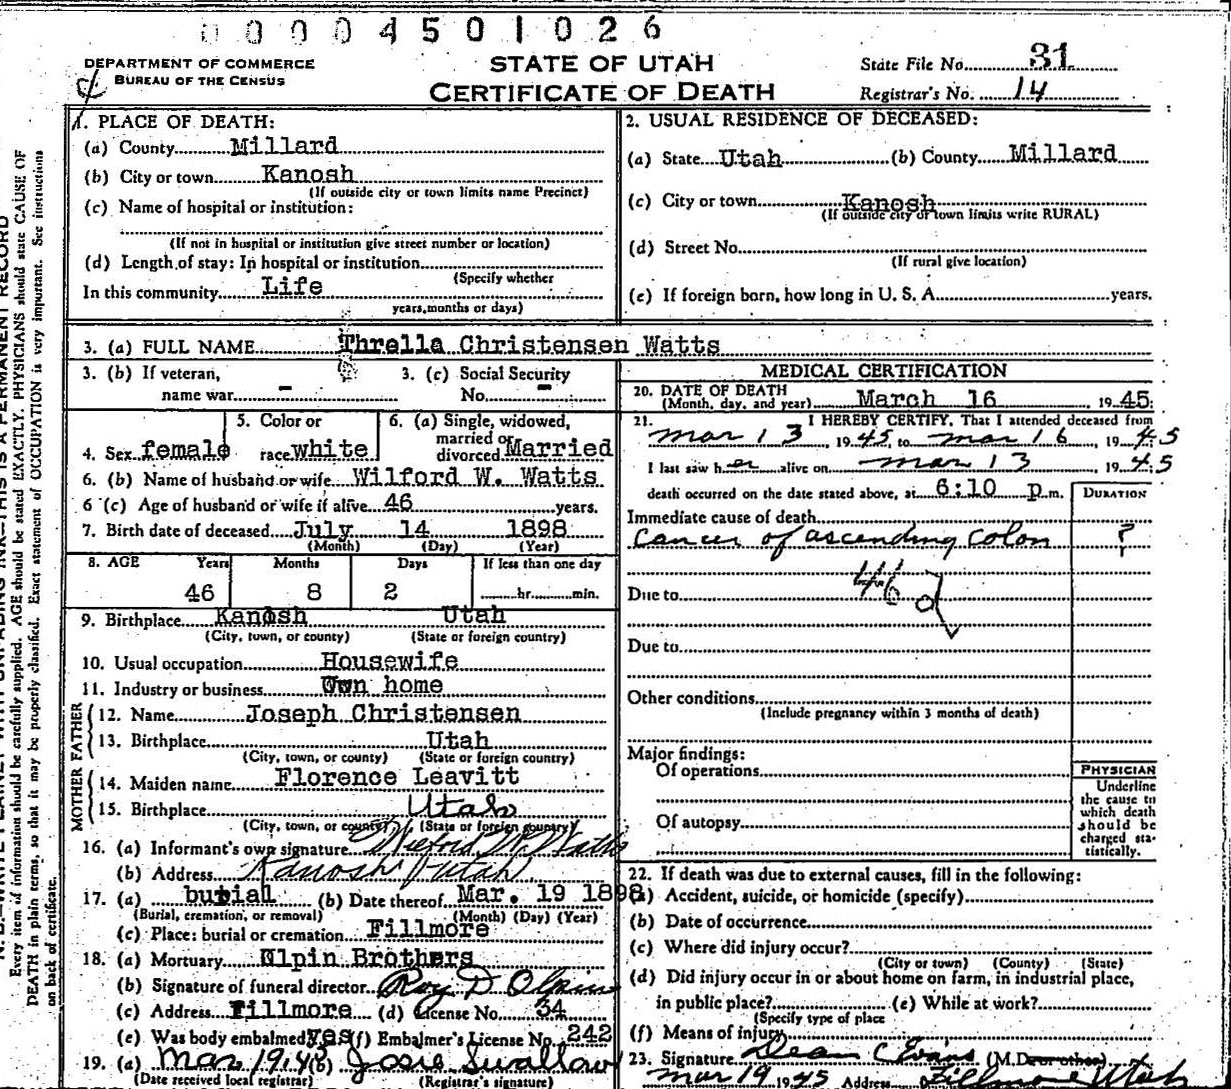 00004501026
DEPARTMENT OF COMMERCE
BUREAU OF THE CENSUS
STATE OF UTAH
CERTIFICATE OF DEATH
State File No. 31
Registrar's No. 14
1. PLACE OF DEATH:
(a) County Millard
(b) City or town Kanosh
(If outside city or town limits name Precinct)
(c) Name of hospital or institution:
(If not in hospital or institution give street number or location)
(d) Length of stay: In hospital or institution
(Specify whether
In this community Life
years, months or days)
2. USUAL RESIDENCE OF DECEASED:
(a) State Utah (b) County Millard
(c) City or town Kanosh
(If outside city or town limits write RURAL)
(d) Street No.
(If rural give location)
(e) If foreign born, how long in U. S. A. years.
3. (a) FULL NAME Thrella Christensen Watts
3. (b) If veteran,
name war -
3. (c) Social Security
No. -
4. Sex female
5. Color or
race white
6. (a) Single, widowed,
married or
divorced Married
6. (b) Name of husband or wife Wilford W. Watts
6 (c) Age of husband or wife if alive 46 years.
7. Birth date of deceased July 14 1898
(Month) (Day) (Year)
8. AGE Years Months Days If less than one day
46 8 2 hr. min.
9. Birthplace Kanosh Utah
(City, town, or county) (State or foreign country)
10. Usual occupation Housewife
11. Industry or business Own home
FATHER
12. Name Joseph Christensen
13. Birthplace Utah
(City, town, or county) (State or foreign country)
MOTHER
14. Maiden name Florence Leavitt
15. Birthplace Utah
(City, town, or county) (State or foreign country)
16. (a) Informant's own signature Wilford W. Watts
(b) Address Kanosh Utah
17. (a) burial (b) Date thereof Mar. 19 1898
(Burial, cremation, or removal) (Month) (Day) (Year)
(c) Place: burial or cremation Fillmore
18. (a) Mortuary Olpin Brothers
(b) Signature of funeral director Roy D Olpin
(c) Address Fillmore (d) License No. 34
(e) Was body embalmed yes (f) Embalmer's License No. 242
19. (a) Mar 19 45 (b) Josie Swallow
(Date received local registrar) (Registrar's signature)
MEDICAL CERTIFICATION
20. DATE OF DEATH
(Month, day, and year) March 16, 1945
21. I HEREBY CERTIFY, That I attended deceased from
Mar 13 1945 to Mar 16, 1945
I last saw her alive on Mar 13, 1945
death occurred on the date stated above, at 6:10 p.m.
DURATION
Immediate cause of death
Cancer of ascending colon ?
Due to 46 d
Due to
Other conditions
(Include pregnancy within 3 months of death)
Major findings:
Of operations
Of autopsy
PHYSICIAN
Underline
the cause to
which death
should be
charged sta-
tistically.
22. If death was due to external causes, fill in the following:
(a) Accident, suicide, or homicide (specify)
(b) Date of occurrence
(c) Where did injury occur?
(City or town) (County) (State)
(d) Did injury occur in or about home on farm, in industrial place,
in public place? (e) While at work?
(Specify type of place
(f) Means of injury
23. Signature Dean C Evans (M.D. or other)
Mar 19 1945 Address Fillmore Utah
Every item of information should be carefully supplied. AGE should be stated EXACTLY. PHYSICIANS should state CAUSE OF
DEATH in plain terms, so that it may be properly classified. Exact statement of OCCUPATION is very important. See instructions
on back of certificate.